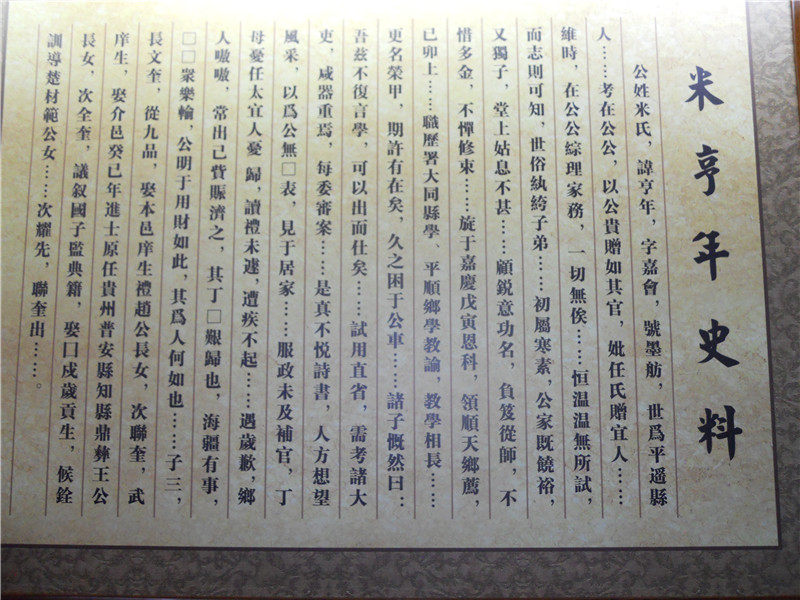 米亨年史料
公姓米氏，諱亨年，字嘉會，號墨舫，世爲平遥縣
人……考在公公，以公貴贈如其官，妣任氏贈宜人……
維時，在公公綜理家務，一切無俟……恒温温無所試，
而志則可知，世俗紈絝子弟……初屬寒素，公家既饒裕，
又獨子，堂上姑息不甚……顧鋭意功名，負笈從師，不
惜多金，不憚修束……旋于嘉慶戊寅恩科，領順天鄉薦，
已卯上……職歷署大同縣學、平順鄉學教諭，教學相長……
更名榮甲，期許有在矣，久之困于公車……諸子慨然曰：
吾兹不復言學，可以出而仕矣……試用直省，需考諸大
吏，咸器重焉，每委審案……是真不悦詩書，人方想望
風采，以爲公無□表，見于居家……服政未及補官，丁
母憂任太宜人憂歸，讀禮未遽，遭疾不起……遇歲歉，鄉
人嗷嗷，常出己貲賑濟之，其丁□艱歸也，海疆有事，
□□衆樂輸，公明于用財如此，其爲人何如也……子三，
長文奎，從九品，娶本邑庠生禮趙公長女，次聯奎，武
庠生，娶介邑癸己年進士原任貴州普安縣知縣鼎彝王公
長女，次全奎，議叙國子監典籍，娶口戍歲貢生，候銓
訓導楚材範公女……次耀先，聯奎出……。